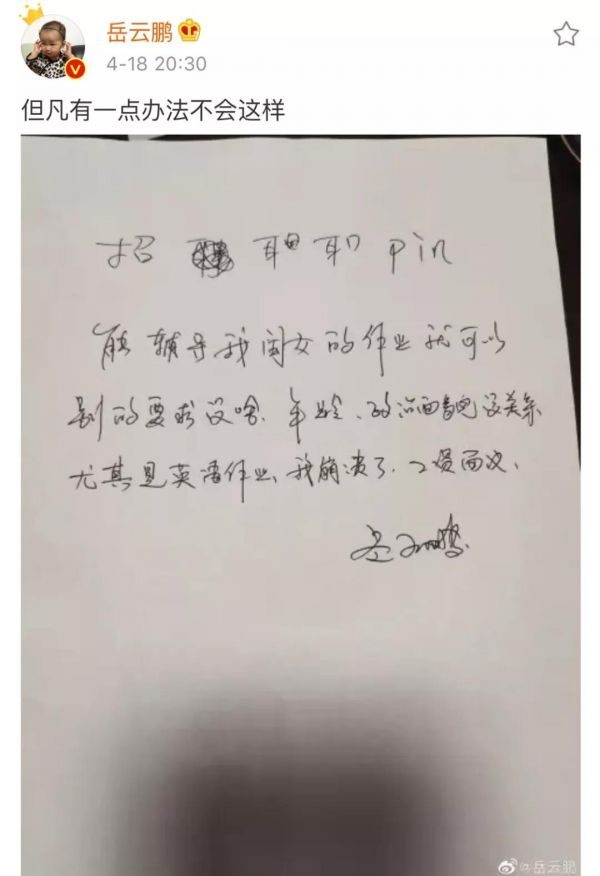 岳云鹏
4-18 20:30
但凡有一点办法不会这样
招 职 pin
能辅导我闺女的作业就可以
别的要求没啥.年龄、政治面貌没关系
尤其是英语作业、我崩溃了.工资面议.
岳云鹏
@岳云鹏